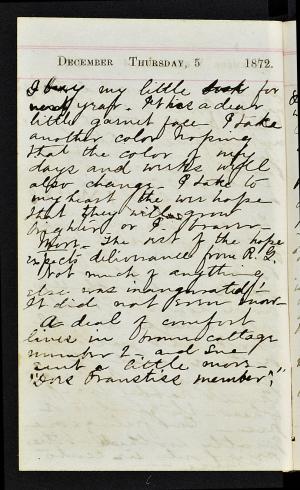 DECEMBER THURSDAY, 5 1872.
I buy my little book for
next year. It has a dear
little garnet face I take
another color hoping
that the color of my
days and works will
also change. I take to
my heart the hope
that they will grow
brighter or I braver
The rest of the hope
expects deliverance from R. G.
Not much of anything
else was inaugurated!
It did not even snow
A deal of comfort
lives in cottage
number 2 - and Sue
aint a little more
"Dors member,"